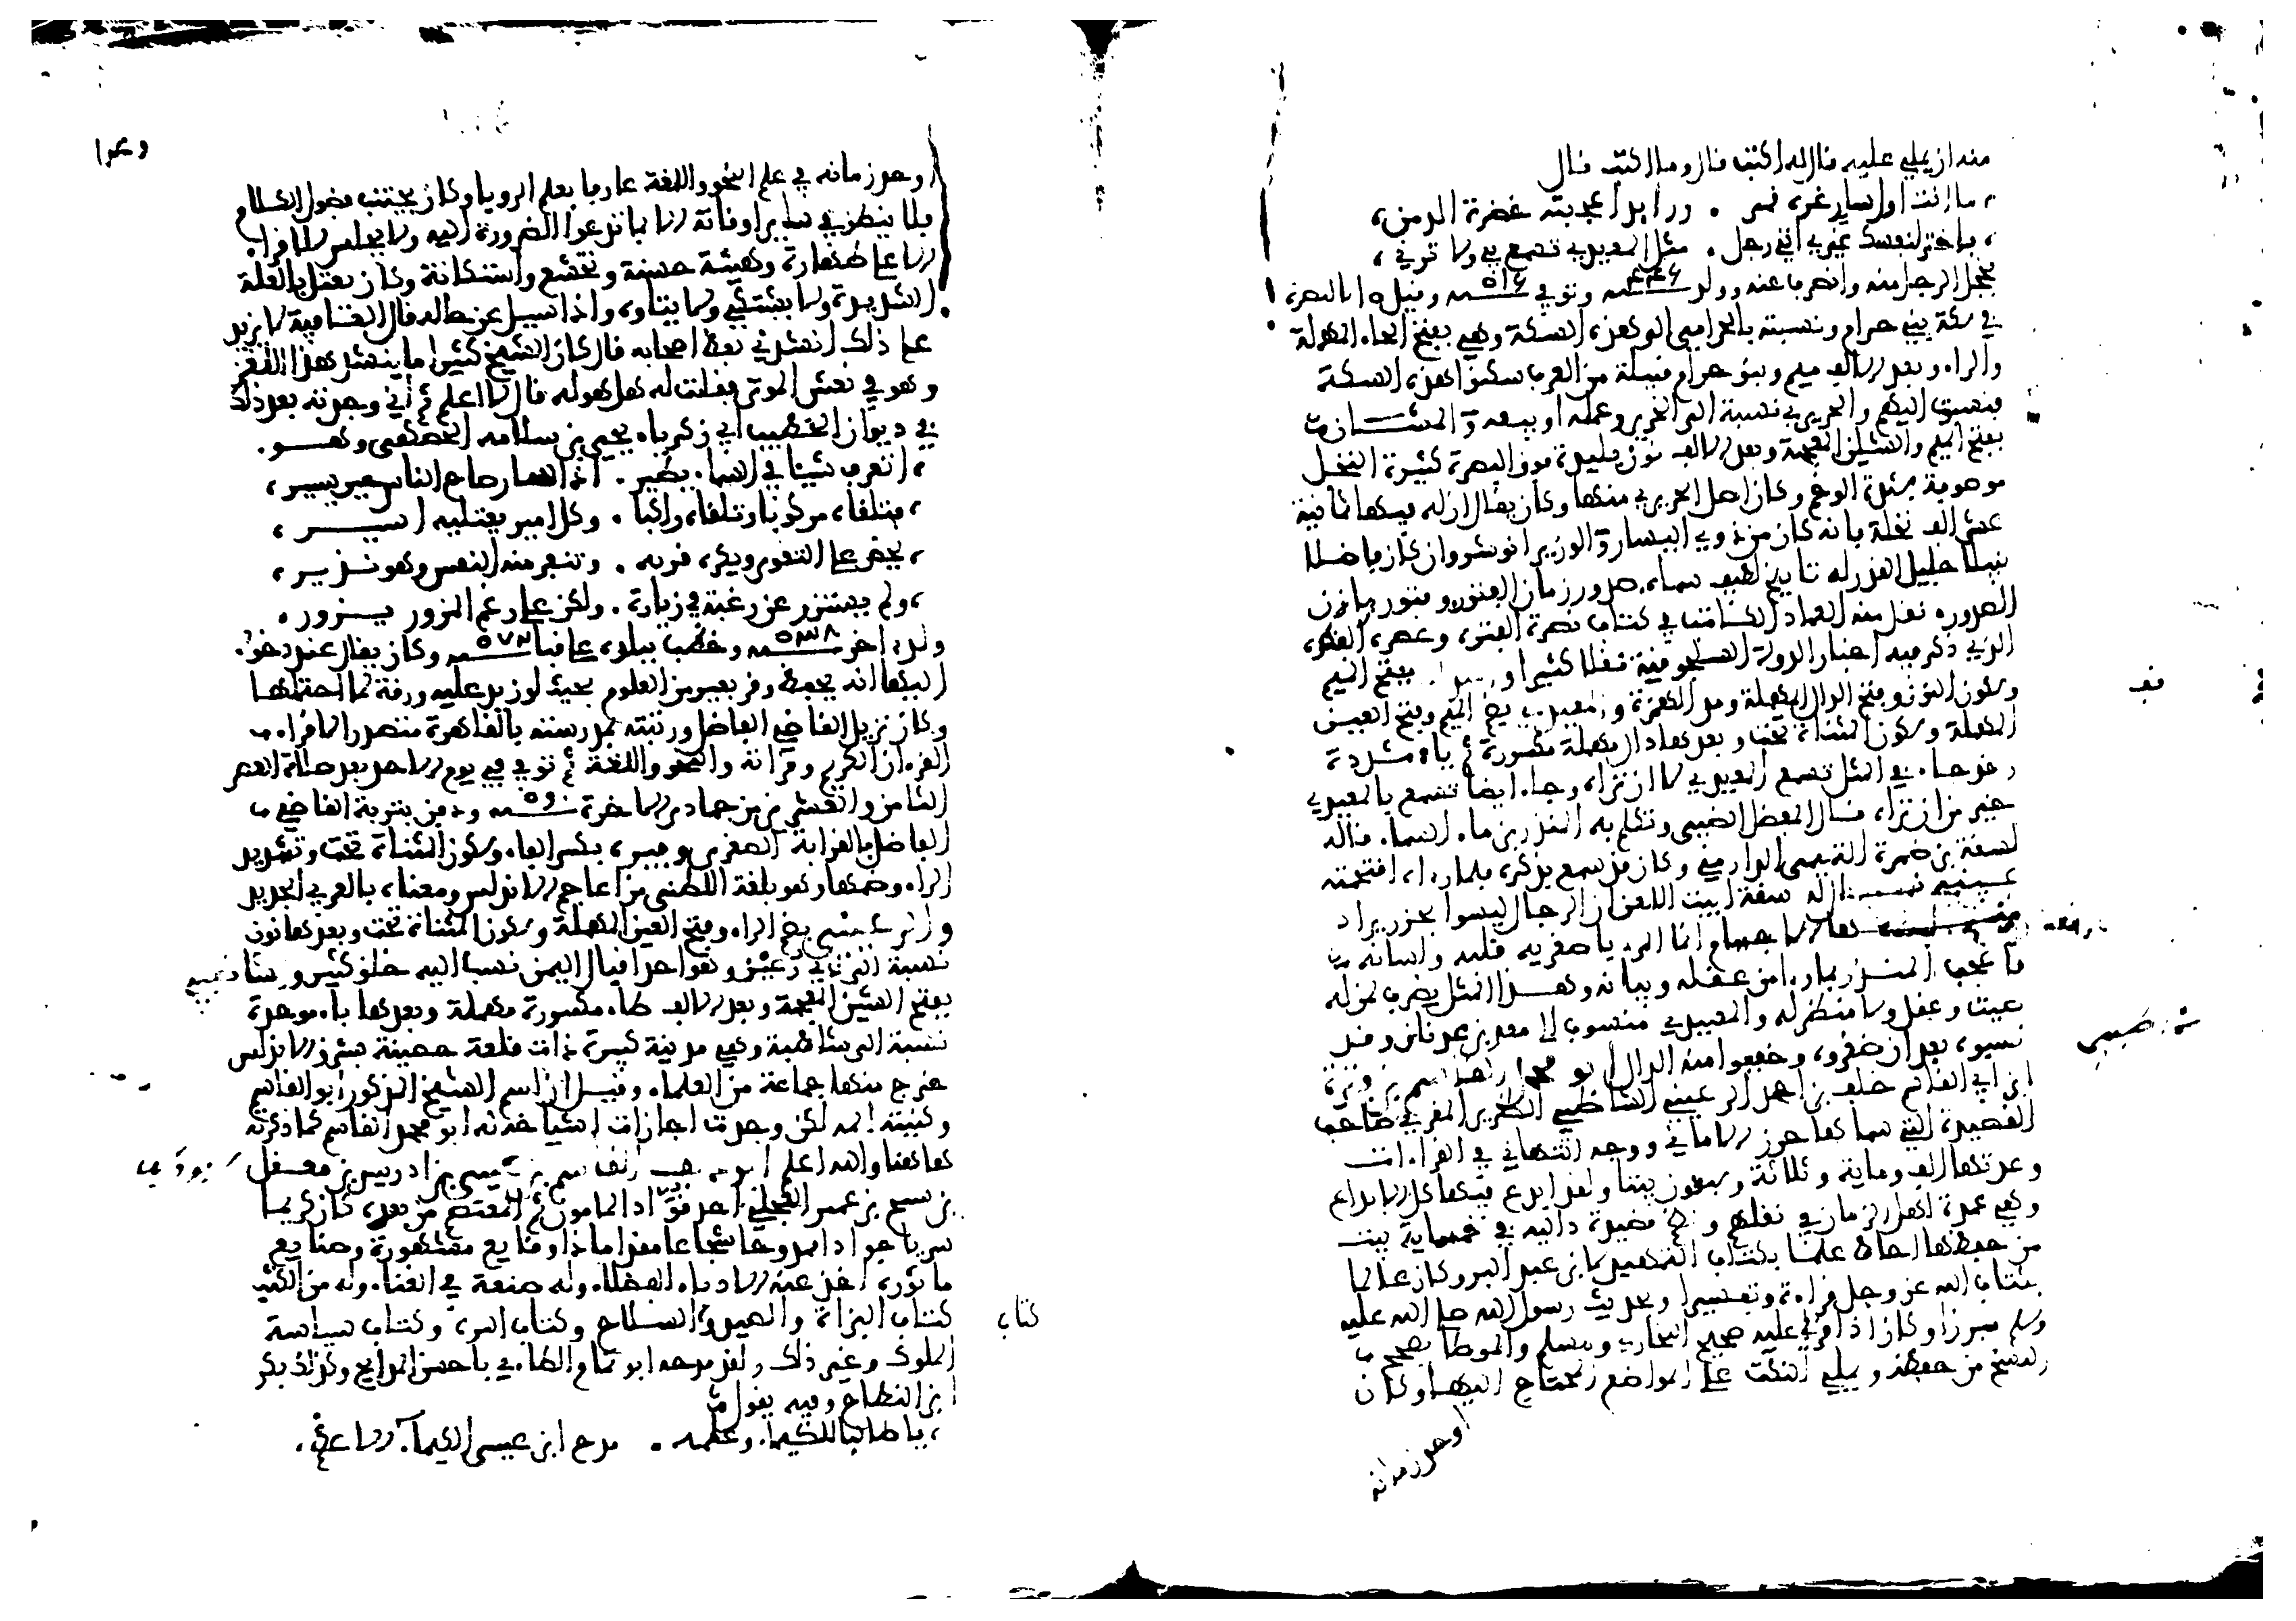 منه ان يملي عليه قال له اكتب قال وما اكتب قال
ما انت اول سار غره قمر . ورائد اعجبته خضرة الدمن
فاختر لنفسك غيري انني رجل . مثل المعيدي تسمع بي ولا ترني
فخجل الرجل منه وانصرف عنه وولد سنة ٤٤٦ وتوفي سنة ٥١٦ وقيل ٥ بالبصرة
في سكة بني حرام ونسبته بالحرامي الى هذه السكة وهي بفتح الحاء المهملة
والراء وبعد الالف ميم وبنو حرام قبيلة من العرب سكنوا هذه السكة
فنسبت اليهم والحريري نسبة الى الحرير وعمله او بيعه والمشان
بفتح الميم والشين المعجمة وبعد الالف نون بليدة فوق البصرة كثيرة النخل
موصوفة بشدة الوخم وكان اصل الحريري منها وكان يقال ان له فيها ثمانية
عشر الف نخلة فانه كان من ذوي اليسار والوزير انوشروان كان فاضلا
نبيلا جليل القدر له تاريخ لطيف سماه صدور زمان الفتور وفتور زمان
الصدور نقل منه العماد الكاتب في كتاب نصرة الفترة وعصرة الفطرة
الذي ذكر فيه اخبار الدولة السلجوقية نقلا كثيرا بفتح الميم
وسكون النون وفتح الدال المهملة ومد الهمزة والمعيدي بضم الميم وفتح العين
المهملة وسكون المثناة تحت وبعدها دال مهملة مكسورة ثم ياء مشددة
وقد جاء في المثل تسمع بالمعيدي لا ان تراه وجاء ايضا تسمع بالمعيدي
خير من ان تراه قال المفضل الضبي وتكلم به المنذر بن ماء السماء قاله
لشقة بن ضمرة التميمي الدارمي وكان قد سمع بذكره فلما راه اقتحمته
عينه فقال له شقة ابيت اللعن ان الرجال ليسوا بجزر يراد
منها الاجسام انما المرء باصغريه قلبه ولسانه
فاعجب المنذر بما راى من عقله وبيانه وهذا المثل يضرب لمن له
صيت وعقل ولا منظر له والمعيدي منسوب الى معد بن عدنان وقد
نسبوه بعد ان صغروه وخففوا منه الدال ابو محمد القاسم بن فيره
ابن ابي القاسم خلف بن احمد الرعيني الشاطبي الضرير المقري صاحب
القصيدة التي سماها حرز الاماني ووجه التهاني في القراءات
وعدتها الف وماية وثلاثة وسبعون بيتا ولقد ابدع فيها كل الابداع
وهي عمدة اهل الزمان في نقلهم وله قصيدة دالية في خمسماية بيت
من حفظها احاط علما بكتاب التمهيد لابن عبد البر وكان عالما
بكتاب الله عز وجل قراءة وتفسيرا وبحديث رسول الله صلى الله عليه
وسلم مبرزا وكان اذا قرئ عليه صحيح البخاري ومسلم والموطا تصحح
النسخ من حفظه ويملي النكت على المواضع المحتاج اليها وكان
اوحد زمانه
اوحد زمانه في علم النحو واللغة عارفا بعلم الرويا وكان يجتنب فضول الكلام
فلا ينطق في ساير اوقاته الا بما تدعوا الضرورة اليه ولا يجلس للاقراء
الا على طهارة وهيئة حسنة وتخشع واستكانة وكان يعتل بالعلة
الشديدة ولا يشتكي ولا يتاوه واذا سيل عن حاله قال العافية لا يزيد
على ذلك انشدني بعض اصحابه قال كان الشيخ كثيرا ما ينشد هذا اللغز
وهو في نعش الموتى فقلت له هل هو له قال لا اعلم ثم اني وجدته بعد ذلك
في ديوان الخطيب ابي زكرياء يحيى بن سلامة الحصكفي وهو
اتعرف شيئا في السماء يطير . اذا سار صاح الناس حيث يسير
فتلقاه مركوبا وتلقاه راكبا . وكل امير يعتليه اسير
يحض على التقوى ويكره قربه . وتنفر منه النفس وهو نذير
ولم يستزر عن رغبة في زيارة . ولكن على رغم المزور يزور
ولد اخر سنة ٥٣٨ وخطب ببلده على فتا سنة ٥٧٢ وكان يقال عند دخوله
اليها انه يحفظ وقر بعير من العلوم بحيث لو نزل عليه ورقة لما احتملها
وكان نزيل القاضي الفاضل ورتبته بمدرسته بالقاهرة متصدرا لاقراء
القرءان الكريم وقراءته والنحو واللغة ثم توفي في يوم الاحد بعد صلاة العصر
الثامن والعشرين من جمادى الاخرة سنة ٥٩٠ ودفن بتربة القاضي
الفاضل بالقرافة الصغرى وفيره بكسر الفاء وسكون المثناة تحت وتشديد
الراء وضمها وهو بلغة اللطيني من اعاجم الاندلس ومعناه بالعربي الحديد
والرعيني بضم الراء وفتح العين المهملة وسكون المثناة تحت وبعدها نون
نسبة الى ذي رعين وهو احد اقيال اليمن نسب اليه خلق كثير وشاطبي
بفتح الشين المعجمة وبعد الالف طاء مكسورة مهملة وبعدها باء موحدة
نسبة الى شاطبة وهي مدينة كبيرة ذات قلعة حصينة بشرق الاندلس
خرج منها جماعة من العلماء وقيل ان اسم الشيخ المذكور ابو القاسم
وكنيته اسمه لكن وجدت اجازات اشياخه له ابو محمد القاسم كما ذكرته
هاهنا والله اعلم ابو دلف القاسم بن عيسى بن ادريس بن معقل
بن سيح بن عمير العجلي احد قواد المامون ثم المعتصم من بعده كان كريما
سريا جوادا ممدوحا شجاعا مقداما ذا وقايع مشهورة وصنايع
ماثورة اخذ عنه الادباء الفضلاء وله صنعة في الغناء وله من الكتب
كتاب البزاة والصيد والسلاح وكتاب النزه وكتاب سياسة
الملوك وغير ذلك ولقد مدحه ابو تمام الطاءي باحسن المدايح وكذلك بكر
ابن النطاح وفيه يقول
يا طالبا للكيمياء وعلمه . مدح ابن عيسى الكيمياء الاعظم